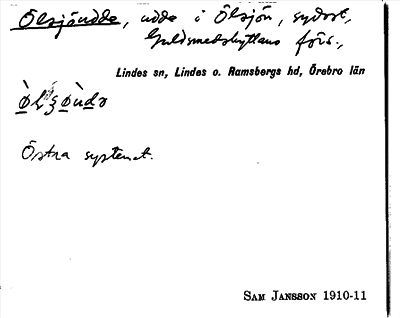 Ölsjöudde, udde i Ölsjön, sydost,
Guldsmedshyttans förs.,
Lindes sn, Lindes o. Ramsbergs hd, Örebro län
Östra systemet.
SAM JANSSON 1910-11